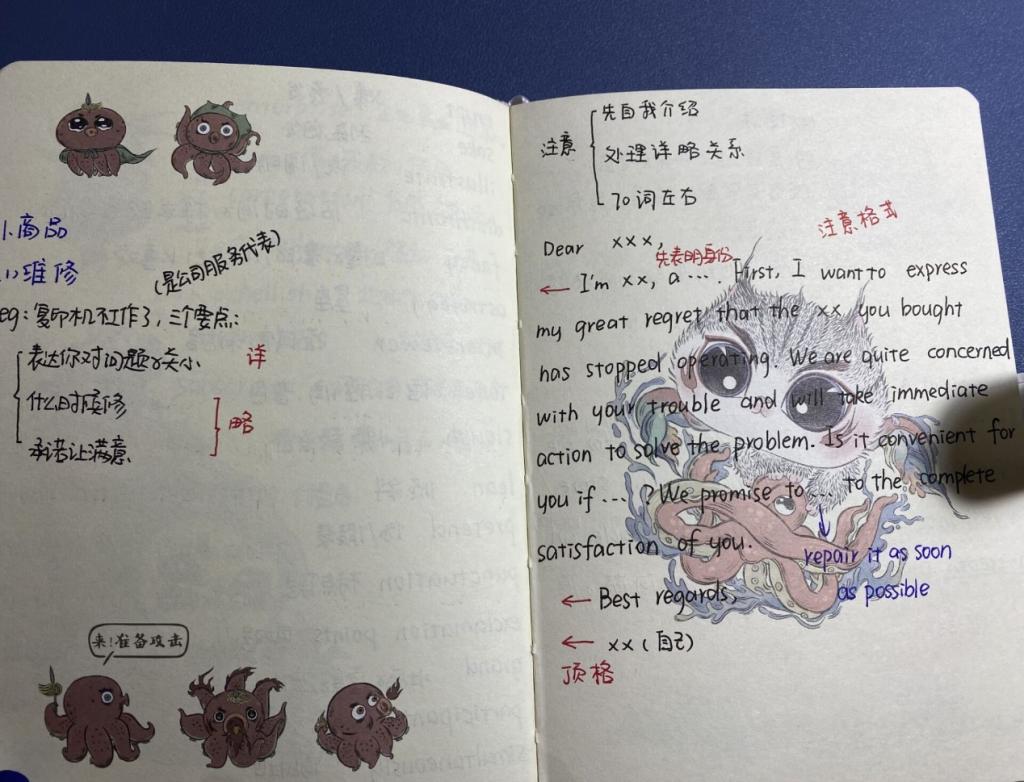 1.商品
(1)维修
(是公司服务代表)
eg:复印机不工作了,三个要点:
表达你对问题的关心 详
什么时候修
略
承诺让满意
来!准备攻击
注意
先自我介绍
处理详略关系
70词左右
注意格式
Dear xxx,
先表明身份
← I'm xx, a .... First, I want to express
my great regret that the xx you bought
has stopped operating. We are quite concerned
with your trouble and will take immediate
action to solve the problem. Is it convenient for
you if .... ? We promise to ... to the complete
satisfaction of you.
repair it as soon
as possible
← Best regards,
← xx (自己)
顶格